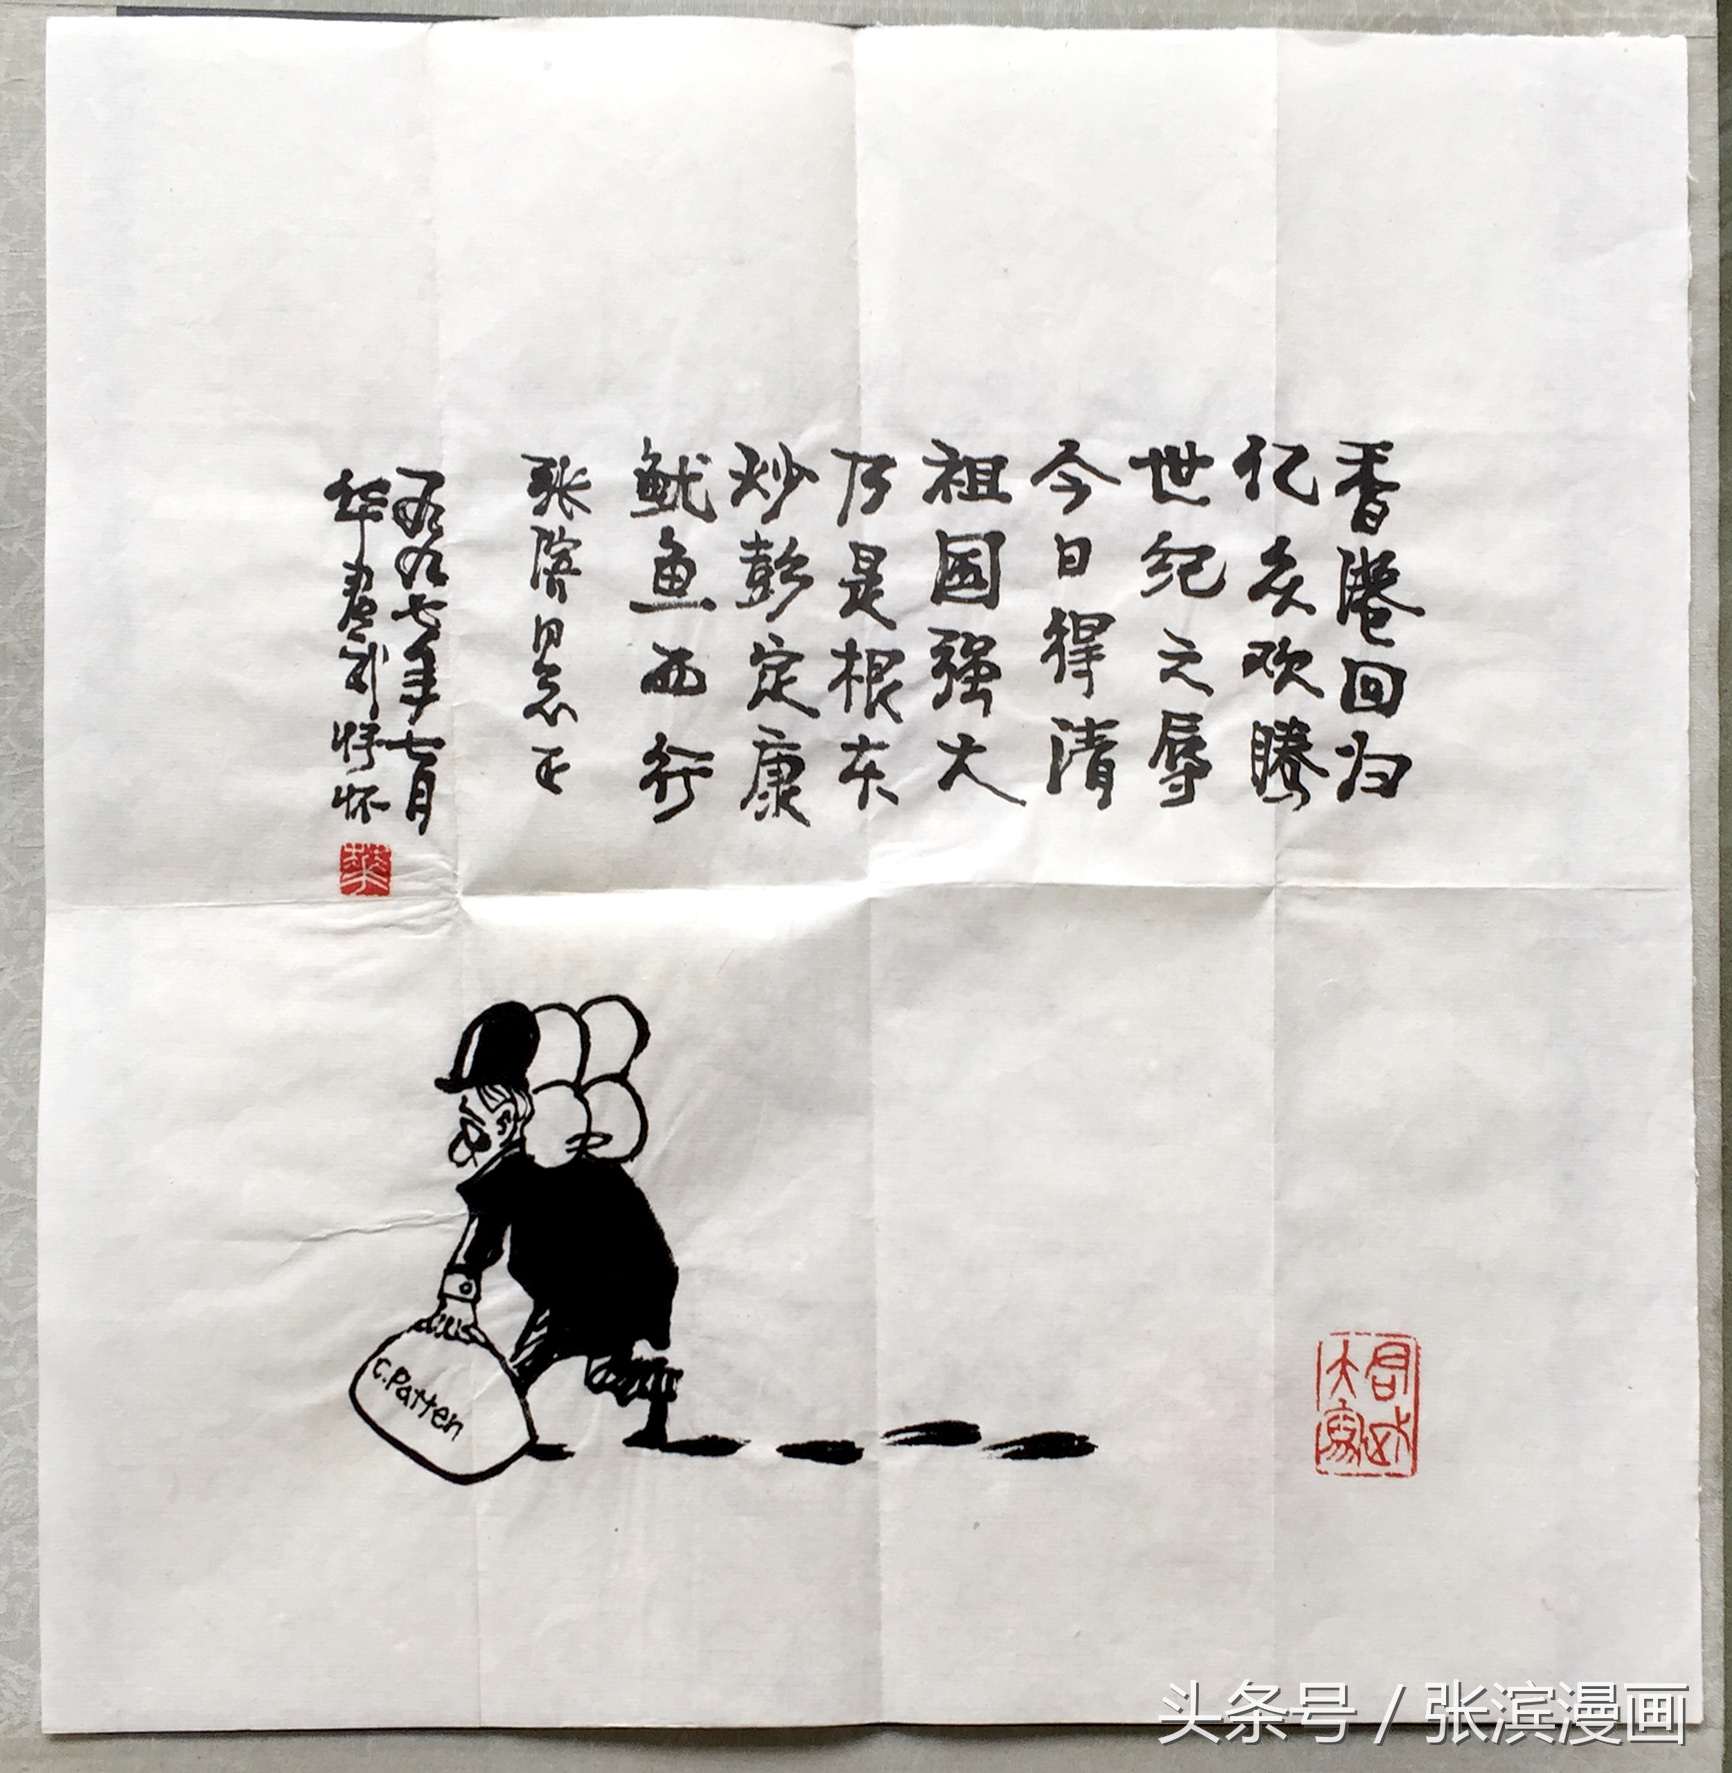 香港回归
亿众欢腾
世纪之辱
今日得清
祖国强大
乃是根本
炒彭定康
鱿鱼西行
张滨同志正
一九九七年七月
华君武抒怀
華
C.Patten
头条号 / 张滨漫画